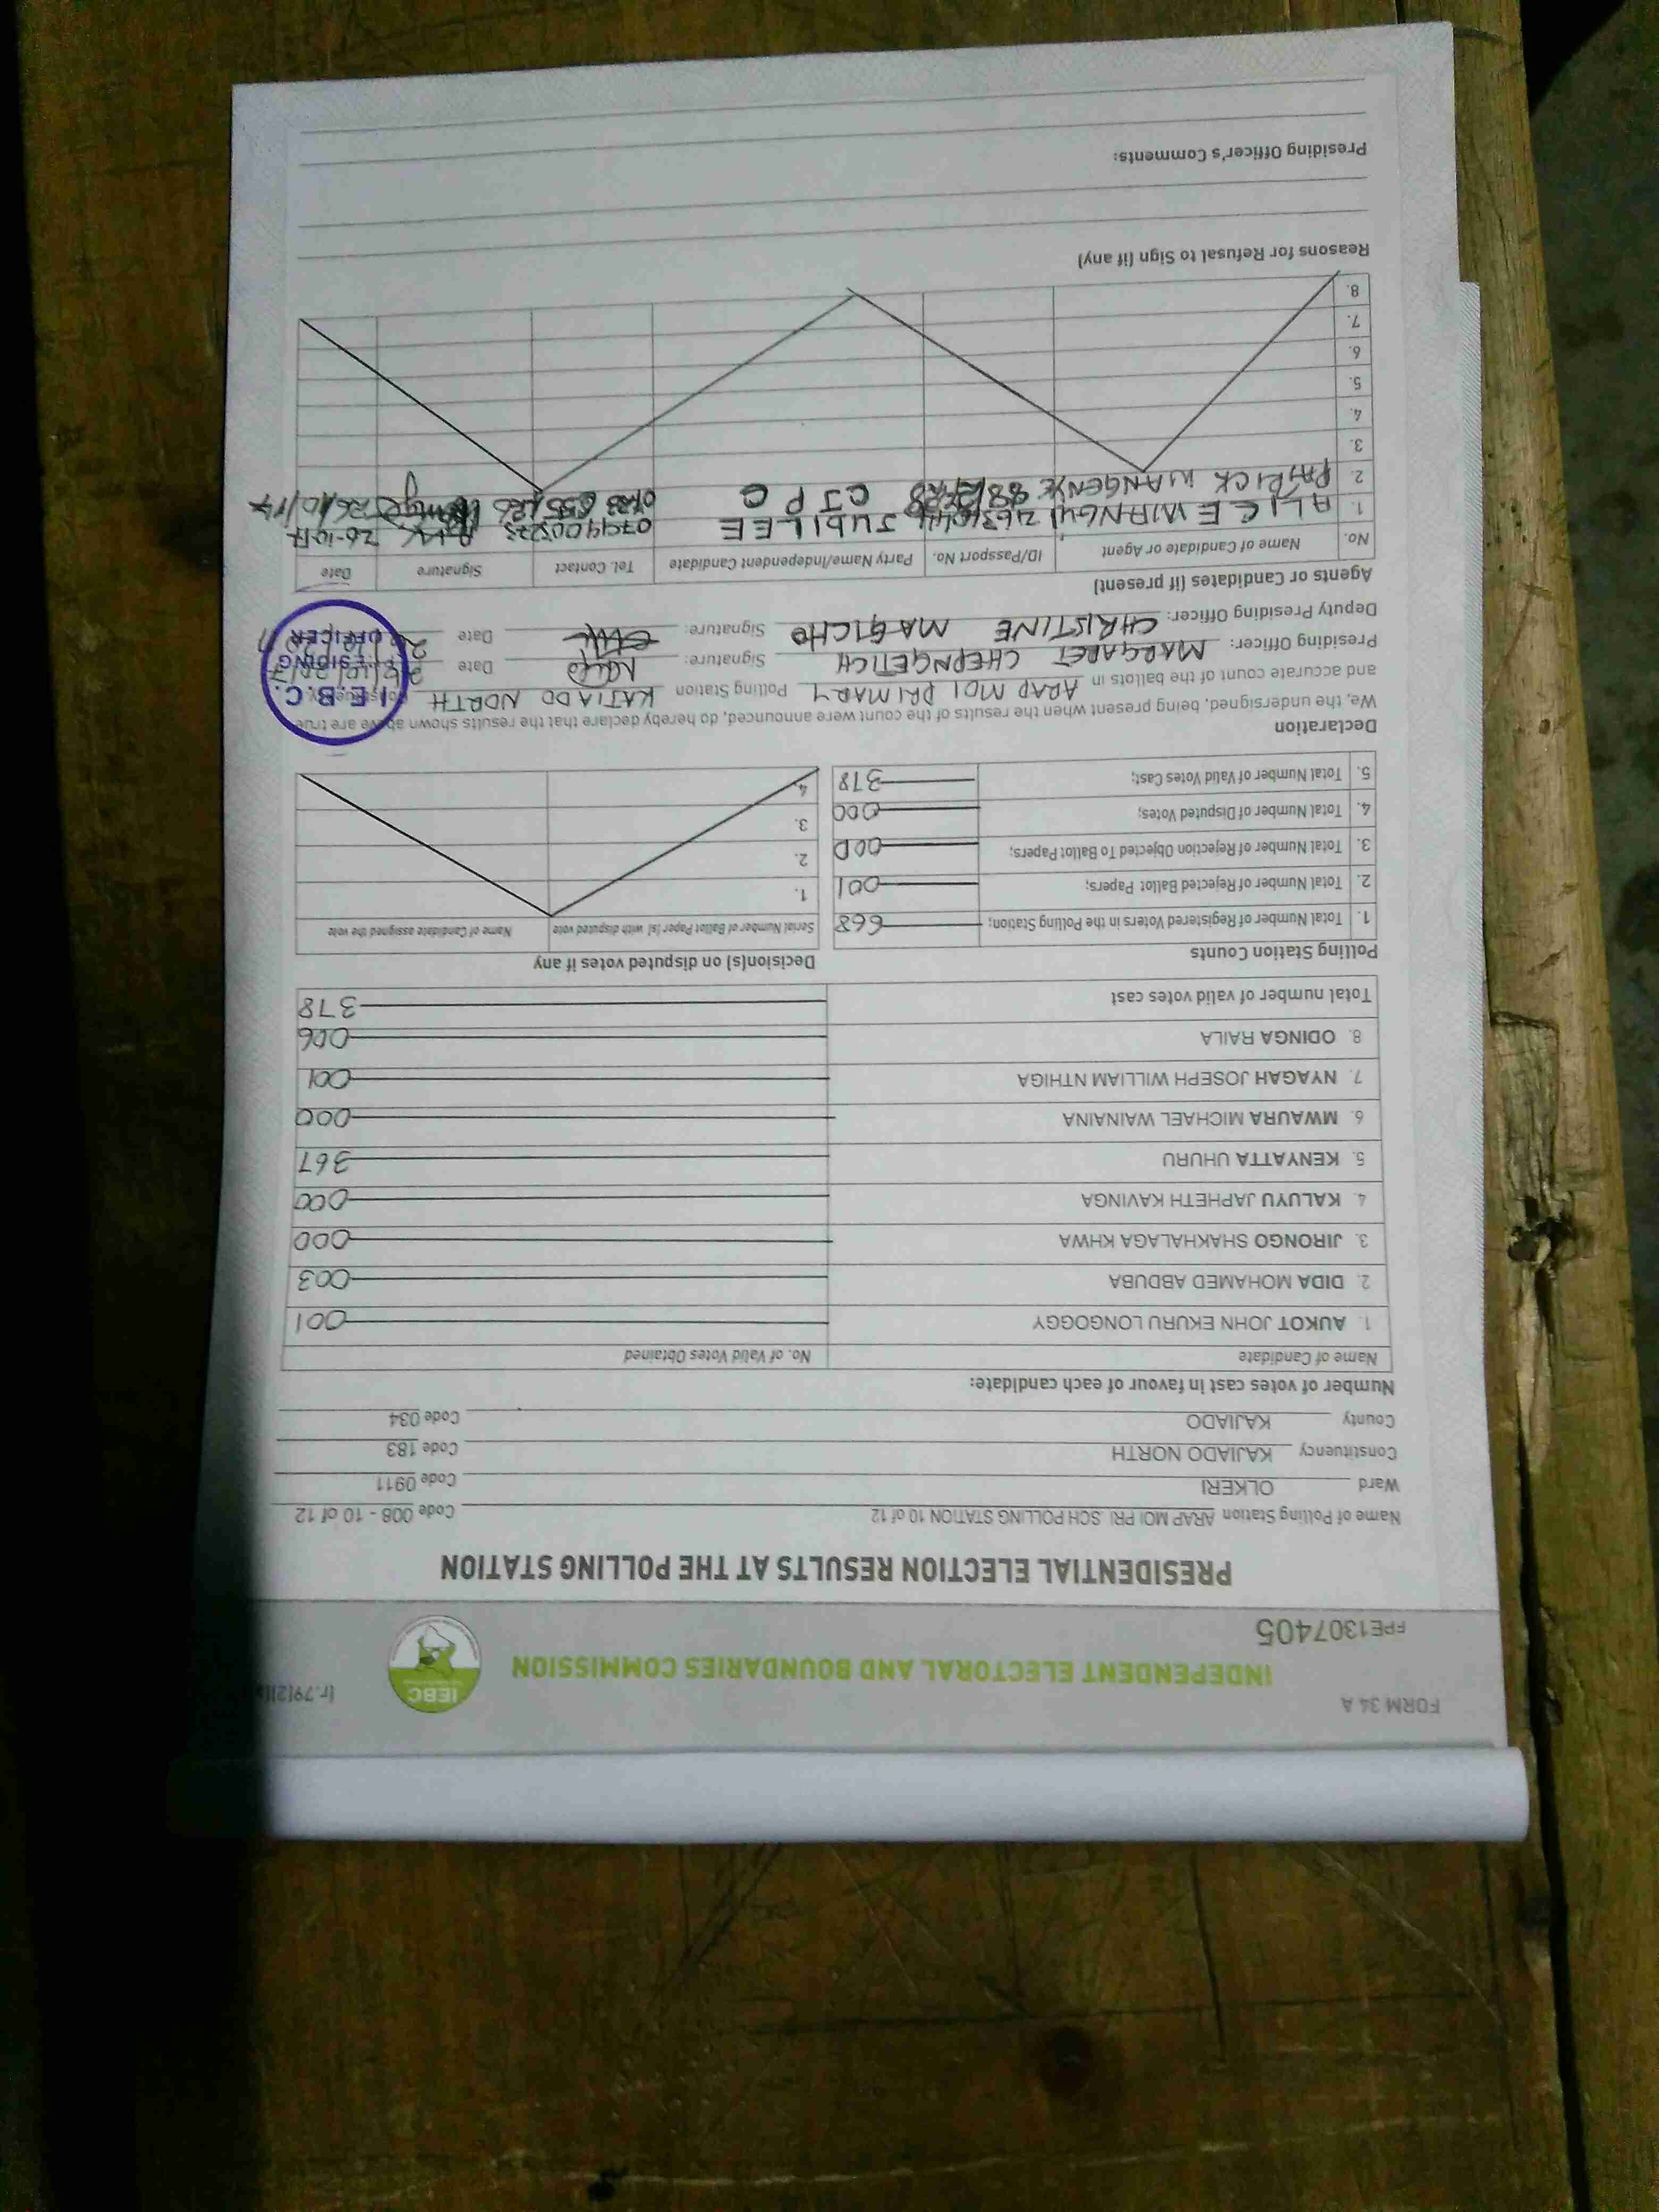 FORM 34 A
INDEPENDENT ELECTORAL AND BOUNDARIES COMMISSION
IEBC
FPE1307405
PRESIDENTIAL ELECTION RESULTS AT THE POLLING STATION
Name of Polling Station ARAP MOI PRI. SCH POLLING STATION 10 of 12 Code 008 - 10 of 12
Ward OLKERI Code 0911
Constituency KAJIADO NORTH Code 183
County KAJIADO Code 034
Number of votes cast in favour of each candidate:
Name of Candidate No. of Valid Votes Obtained
1. AUKOT JOHN EKURU LONGOGGY 001
2. DIDA MOHAMED ABDUBA 003
3. JIRONGO SHAKHALAGA KHWA 000
4. KALUYU JAPHETH KAVINGA 000
5. KENYATTA UHURU 367
6. MWAURA MICHAEL WAINAINA 000
7. NYAGAH JOSEPH WILLIAM NTHIGA 001
8. ODINGA RAILA 006
Total number of valid votes cast 378
Polling Station Counts Decision(s) on disputed votes if any
1. Total Number of Registered Voters in the Polling Station; 668
2. Total Number of Rejected Ballot Papers; 001
3. Total Number of Rejection Objected To Ballot Papers; 000
4. Total Number of Disputed Votes; 000
5. Total Number of Valid Votes Cast; 378
Serial Number of Ballot Paper (s) with disputed vote Name of Candidate assigned the vote
1.
2.
3.
4.
Declaration
We, the undersigned, being present when the results of the count were announced, do hereby declare that the results shown above are true
and accurate count of the ballots in ARAP MOI PRIMARY Polling Station KAJIADO NORTH
Presiding Officer: MARGARET CHEPNGETICH Signature: Date
Deputy Presiding Officer: CHRISTINE MAGICHO Signature: Date
I.E.B.C.
PRESIDING
OFFICER
Agents or Candidates (if present)
No. Name of Candidate or Agent ID/Passport No. Party Name/Independent Candidate Tel. Contact Signature Date
1. ALICE WANGUI JUBILEE 26-10-17
2. PATRICK WANGENYE CJPC 26/10/17
3.
4.
5.
6.
7.
8.
Reasons for Refusal to Sign (if any)
Presiding Officer's Comments: